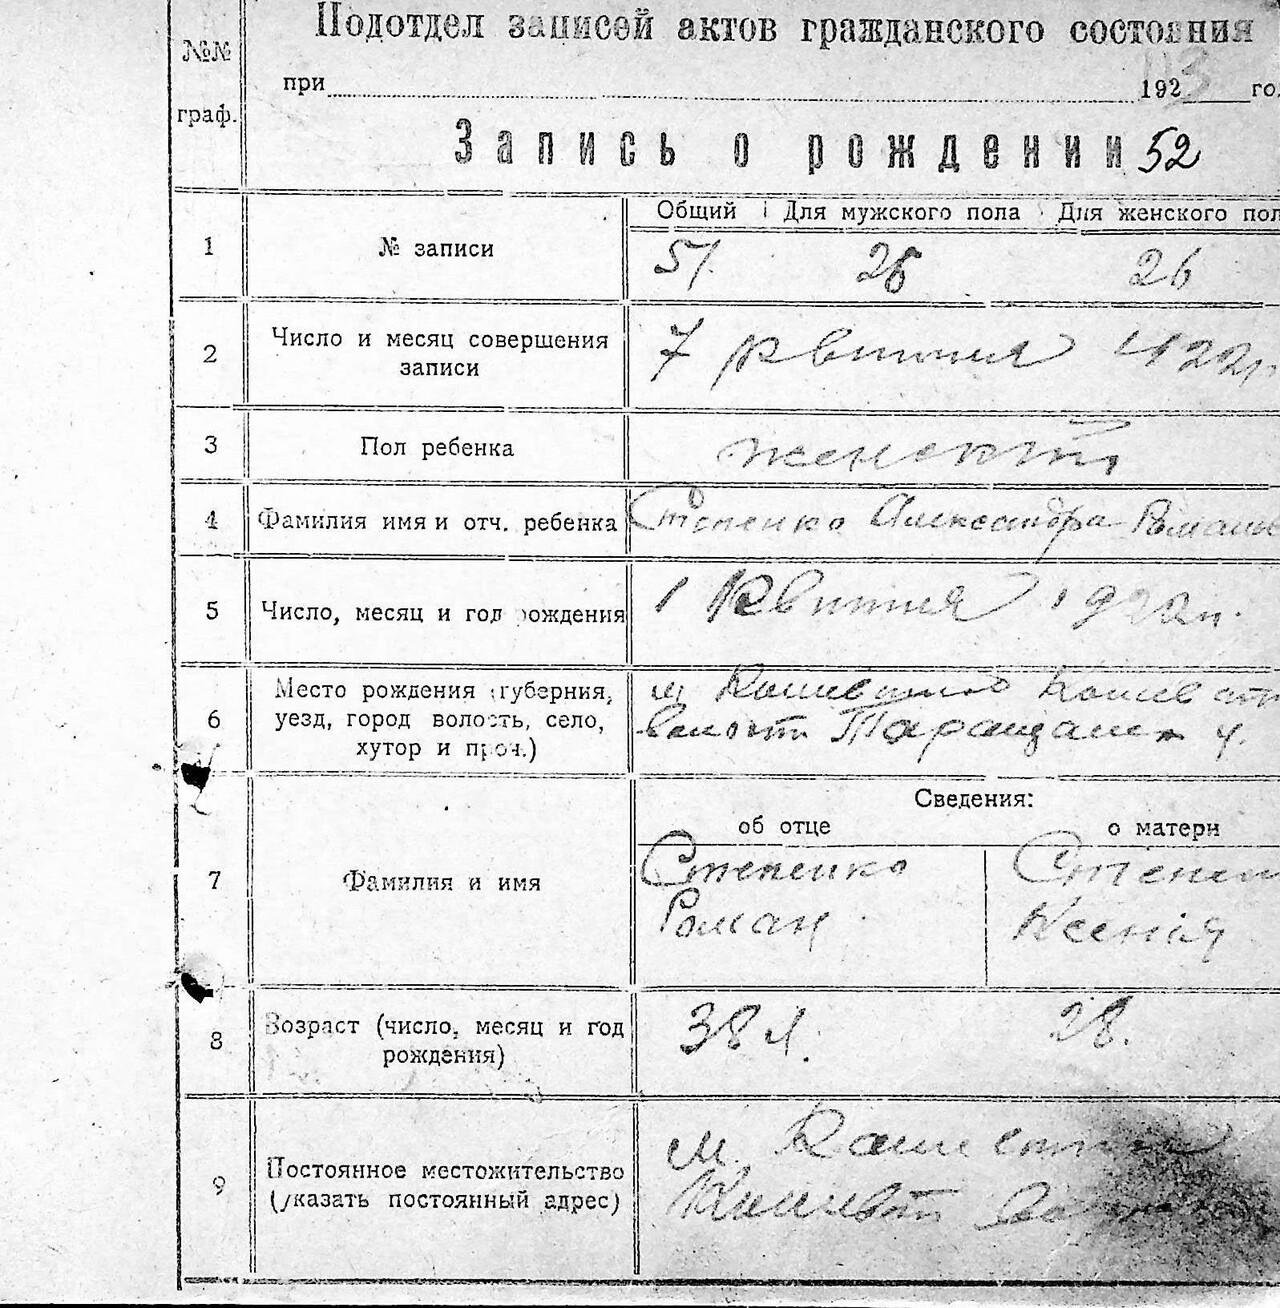 Подотдел записей актов гражданского состояния
№№ граф.
при 192 го
Запись о рождении 52
Общий Для мужского пола Для женского пол
1 № записи 51. 25 26
2 Число и месяц совершения
записи 7 квітня 1922р
3 Пол ребенка женский
4 Фамилия имя и отч. ребенка Степенко Александра Роман
5 Число, месяц и год рождения 1 Квітня 1922р.
6 Место рождения (губерния,
уезд, город волость, село,
хутор и проч.)
м Кошевата Кошеват
волости Таращанск у.
Сведения:
об отце о матери
7 Фамилия и имя
Степенко Степен
Роман Ксенія
8 Возраст (число, месяц и год
рождения) 38 л. 28.
9 Постоянное местожительство
(указать постоянный адрес)
м. Кошевата
Кошеват